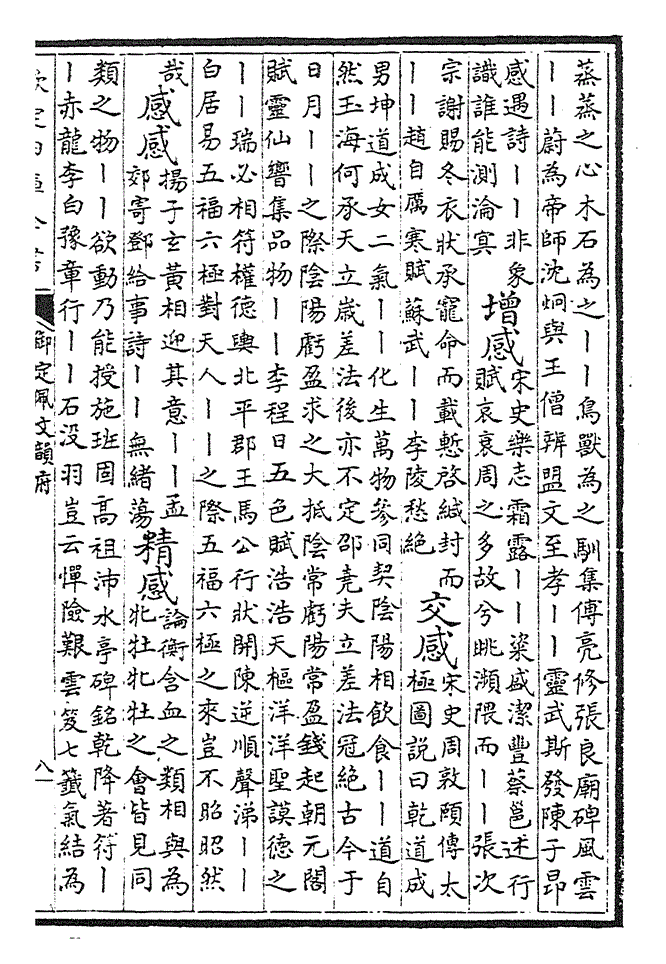 蒸蒸之心木石為之丨丨鳥獸為之馴集傅亮修張良廟碑風雲
丨丨蔚為帝師沈炯與王僧辨盟文至孝丨丨靈武斯發陳子昂
感遇詩丨丨非象
識誰能測淪冥
增感
宋史樂志霜露丨丨粢盛潔豐蔡邕述行
賦哀衰周之多故兮眺瀕隈而丨丨張次
宗謝賜冬衣狀承寵命而載慙啓緘封而
丨丨趙自厲寒賦蘇武丨丨李陵愁絶
交感
宋史周敦頤傳太
極圖說曰乾道成
男坤道成女二氣丨丨化生萬物參同契陰陽相飲食丨丨道自
然玉海何承天立嵗差法後亦不定邵堯夫立差法冠絶古今于
日月丨丨之際陰陽虧盈求之大抵陰常虧陽常盈錢起朝元閣
賦靈仙響集品物丨丨李程日五色賦浩浩天樞洋洋聖謨德之
丨丨瑞必相符權德輿北平郡王馬公行狀開陳逆順聲涕丨丨
白居易五福六極對天人丨丨之際五福六極之來豈不昭昭然
哉
感感
揚子玄黃相迎其意丨丨孟
郊寄鄧給事詩丨丨無緒蕩
精感
論衡含血之類相與為
牝牡牝牡之會皆見同
類之物丨丨欲動乃能授施班固高祖沛水亭碑銘乾降著符丨
丨赤龍李白豫章行丨丨石没羽豈云憚險艱雲笈七籤氣結為
欽定四庫全書
御定佩文韻府
八